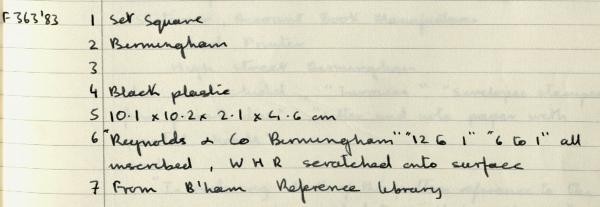 F363'83 1 Set Square
2 Birmingham
3
4 Black plastic
5 10.1 x 10.2 x 2.1 x 4.6 cm
6 "Reynolds & Co Birmingham" "12 to 1" "6 to 1" all
inscribed, W H R scratched onto surface
7 From B'ham Reference Library